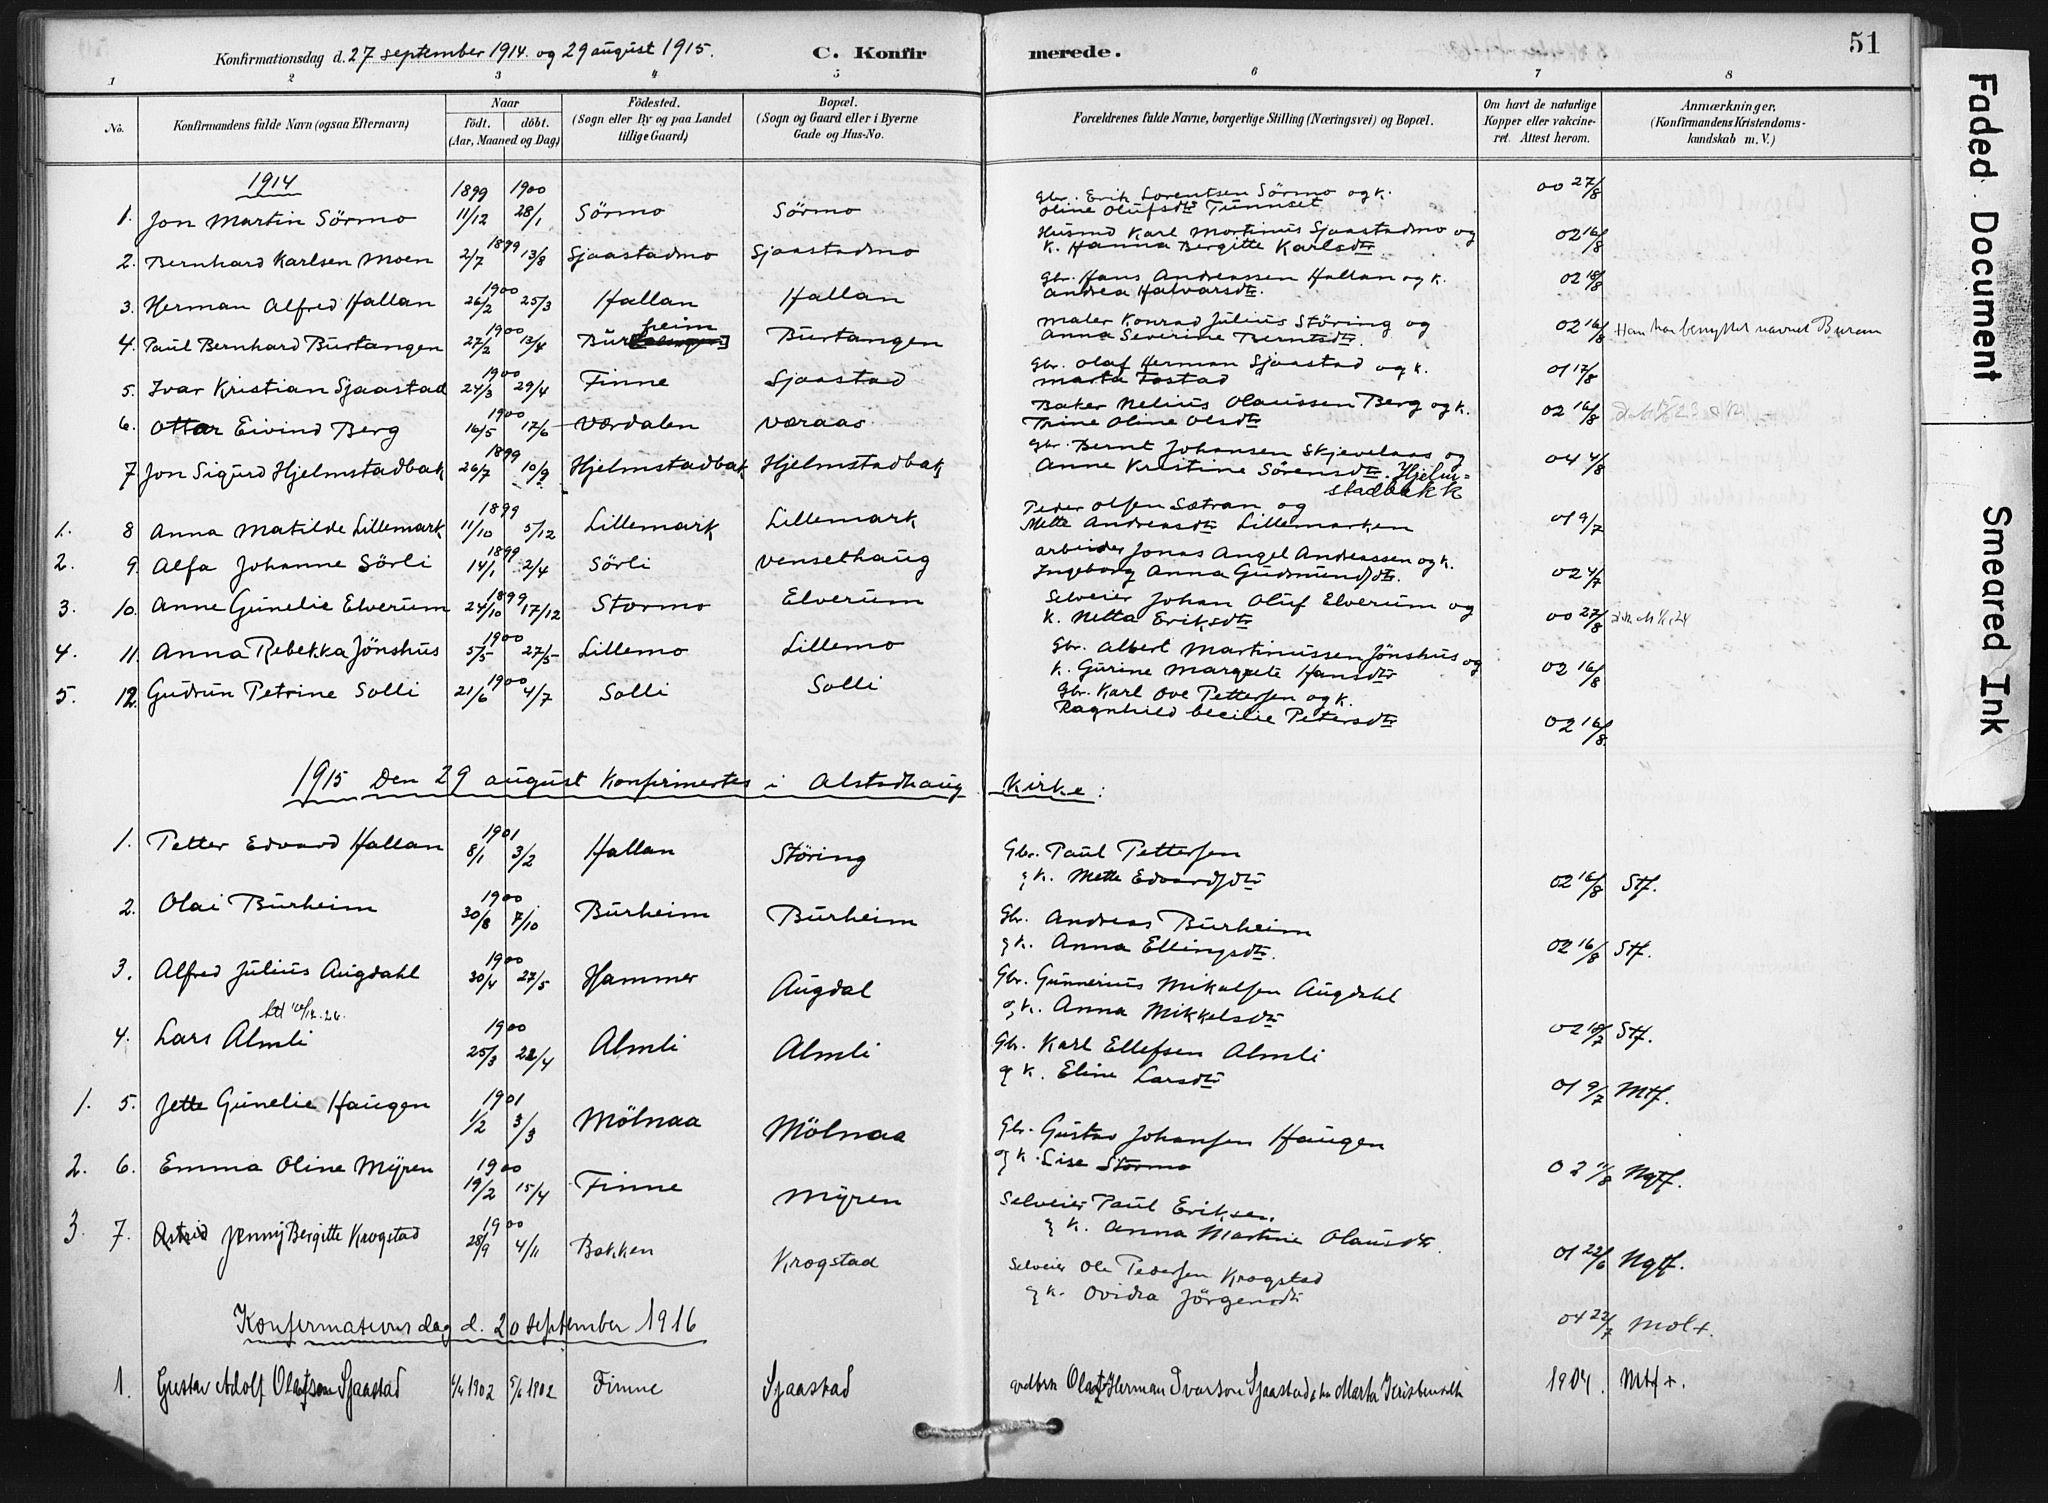 51
Konfirmationsdag d. 27 september 1914 og 29 august 1915. C. Konfirmerede.
1 2 3 4 5 6 7 8
No. Konfirmandens fulde Navn (ogsaa Efternavn) Naar født. døbt. (Aar, Maaned og Dag) Fødested. (Sogn eller By og paa Landet tillige Gaard) Bopæl. (Sogn og Gaard eller i Byerne Gade og Hus-No. Forældrenes fulde Navne, borgerlige Stilling (Næringsvei) og Bopæl. Om havt de naturlige Kopper eller vakcineret. Attest herom. Anmærkninger, (Konfirmandens Kristendomskundskab m. V.)
1914
1. Jon Martin Sörmo 1899 11/12 1900 28/1 Sörmo Sörmo Gbr. Erik Lorentsen Sörmo og k. Oline Olufsdtr Tunnset 00 27/8
2. Bernhard Karlsen Moen 1899 2/7 13/8 Sjaastadmo Sjaastadmo Husmd Karl Mortinus Sjaastadmo og k. Hanna Bergitte Karlsdtr 02 16/8
3. Herman Alfred Hallan 1900 26/2 25/3 Hallan Hallan Gbr. Hans Andreassen Hallan og k. Andrea Halvarsdtr. 02 18/8
4. Paul Bernhard Burtangen 1900 27/2 13/4 Burheim Burtangen Maler Konrad Julius Störing og Anna Severine Berntsdtr. 02 16/8 Han har benyttet navnet Buran
5. Ivar Kristian Sjaastad 1900 24/3 29/4 Finne Sjaastad Gbr. Olaf Herman Sjaastad og k. Marta Tostad 01 17/8
6. Ottar Eivind Berg 1900 16/5 17/6 Værdalen Væraas Baker Nelius Olaussen Berg og k. Trine Oline Olsdtr 02 16/8
7 Jon Sigurd Hjelmstadbak 1899 26/7 10/9 Hjelmstadbak Hjelmstadbak Gbr. Bernt Johansen Skjevelaas og Anne Kristine Sörensdtr. Hjelmstadbakk 04 4/8
1. 8 Anna Matilde Lillemark 1899 11/10 5/12 Lillemark Lillemark Peder Olsen Sætran og Mette Andreasdtr Lillemarken 01 9/7
2. 9. Alfa Johanne Sörli 1899 14/1 2/4 Sörli Vensethaug arbeider Jonas Angel Andreassen og k. Ingeborg Anna Gudmundsdtr. 02 4/7
3. 10. Anne Gunelie Elverum 1899 24/10 17/12 Stormo Elverum Selveier Johan Oluf Elverum og k. Netta Eriksdtr 00 27/8
4. 11. Anna Rebekka Jönshus 1900 5/5 27/5 Lillemo Lillemo Gbr. Albert Martinussen Jönshus og k. Gurine Margrete Hansdtr 02 16/8
5. 12. Gudrun Petrine Solli 1900 21/6 4/7 Solli Solli Gbr. Karl Ove Pettersen og k. Ragnhild Cecilie Petersdtr 02 16/8.
1915 Den 29 august konfirmertes i Alstadhaug Kirke:
1. Petter Edvard Hallan 1901 8/1 3/2 Hallan Störing Gbr. Paul Pettersen og k. Mette Edvardsdtr 02 16/8 Stf.
2. Olai Burheim 1900 30/8 7/10 Burheim Burheim Gbr. Andreas Burheim og k. Anna Ellingsdtr. 02 16/8 Stf.
3. Alfred Julius Augdahl 1900 30/4 27/5 Hammer Augdal Gbr. Gunnerius Mikalsen Augdahl og k. Anna Mikkelsdtr 02 18/7 Stf.
4. Lars Almli 1900 25/3 22/4 Almli Almli Gbr. Karl Ellefsen Almli og k. Eline Larsdtr 01 9/7 Mtf.
1. 5. Jette Gunelie Haugen 1901 1/2 3/3 Mölnaa Mölnaa Gbr. Gustav Johansen Haugen og k. Lise Stormo 02 11/8 Ngtf.
2. 6. Emma Oline Myren 1900 19/2 15/4 Finne Myren Selveier Paul Eriksen og k. Anna Martine Olausdtr. 01 22/6 Ngtf.
3. 7. Astrid Jenny Bergitte Krogstad 1900 28/9 4/11 Bakken Krogstad Selveier Ole Pedersen Krogstad og k. Ovidia Jörgensdtr 04 22/7 Mol+.
Konfirmationsdag d. 20 september 1916
1. Gustav Adolf Olafson Sjaastad 1902 1902 Finne Sjaastad Olaf Herman Ivarson Sjaastad Marta 1904. Mtf+.
Faded Document Smeared Ink